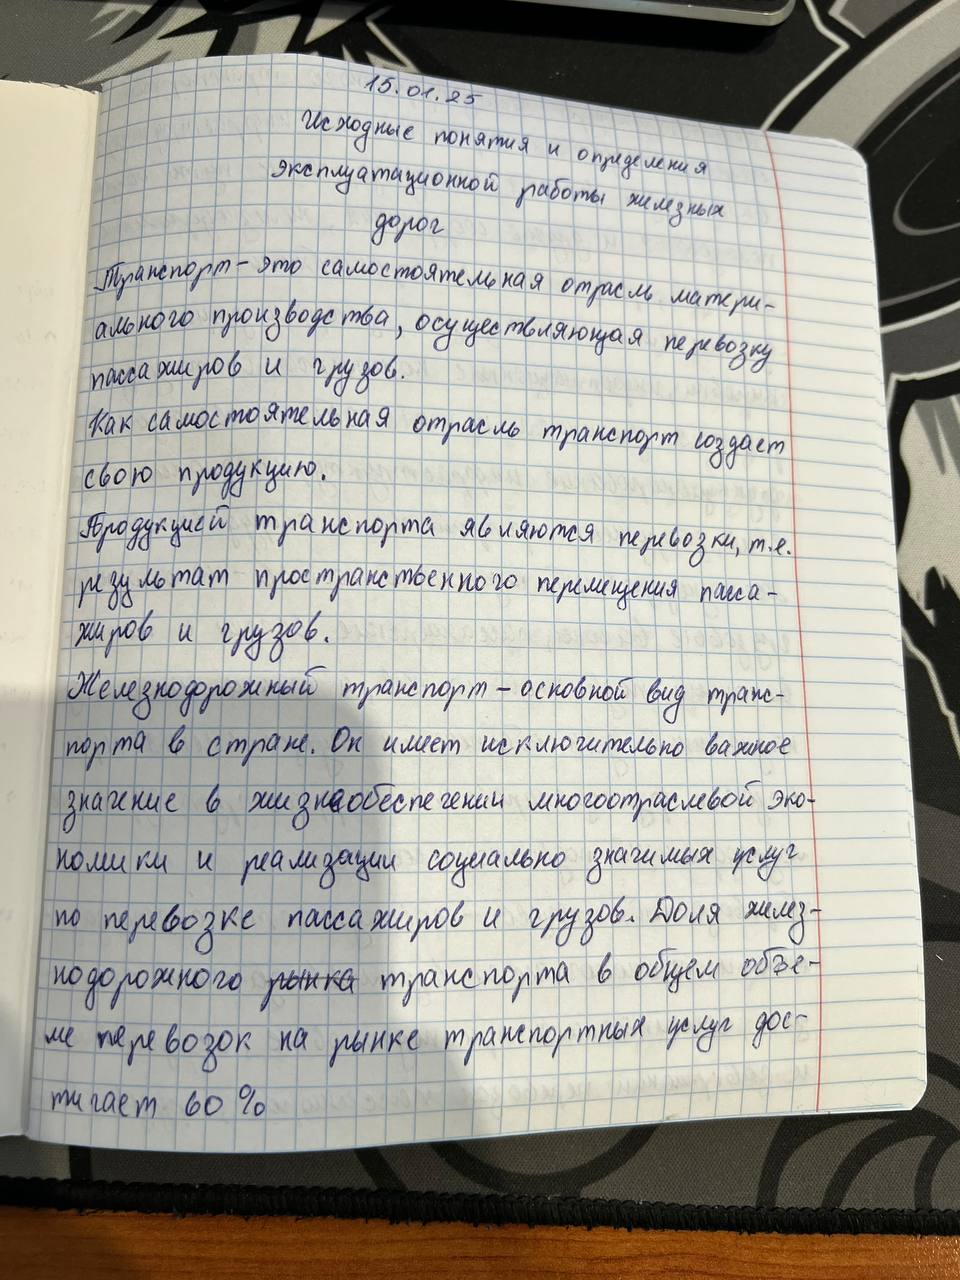 15.01.25
Исходные понятия и определения
эксплуатационной работы железных
дорог
Транспорт - это самостоятельная отрасль матери-
ального производства, осуществляющая перевозку
пассажиров и грузов.
Как самостоятельная отрасль транспорт создает
свою продукцию.
Продукцией транспорта являются перевозки, т.е.
результат пространственного перемещения пасса-
жиров и грузов.
Железнодорожный транспорт - основной вид транс-
порта в стране. Он имеет исключительно важное
значение в жизнеобеспечении многоотраслевой эко-
номики и реализации социально значимых услуг
по перевозке пассажиров и грузов. Доля желез-
нодорожного рынка транспорта в общем объе-
ме перевозок на рынке транспортных услуг дос-
тигает 60 %